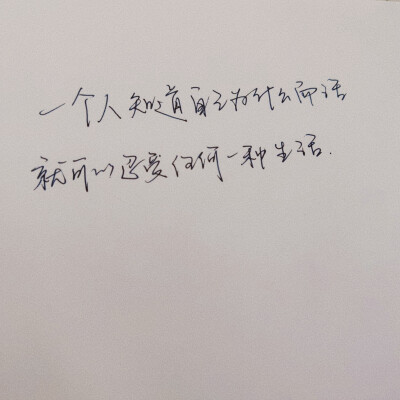 一个人知道自己为什么而活
就可以忍受任何一种生活.